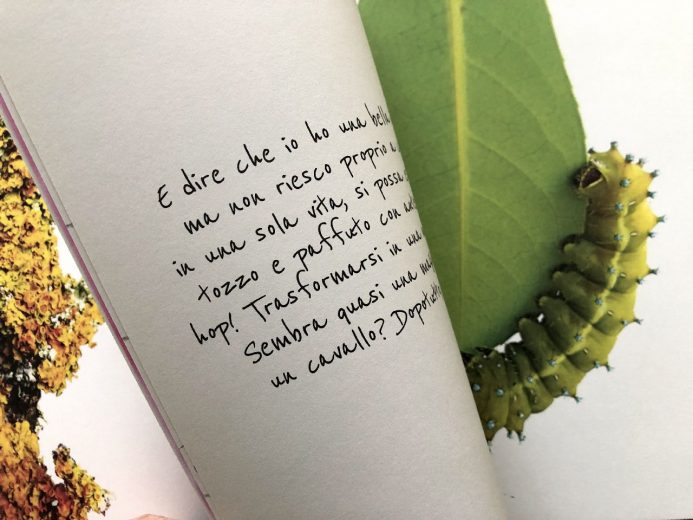 E dire che io ho una bella
ma non riesco proprio a
in una sola vita, si possa
tozzo e paffuto con
hop! Trasformarsi in una
Sembra quasi una
un cavallo? Dopotutto